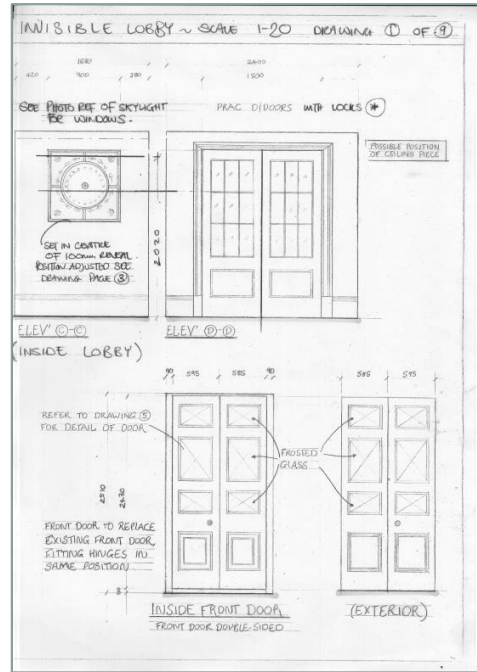 INVISIBLE LOBBY ~ SCALE 1-20 DRAWING ① OF ⑨
2400
420 900
1500
SEE PHOTO REF OF SKYLIGHT
FOR WINDOWS.
PRAC D/DOORS WITH LOCKS *
POSSIBLE POSITION
OF CEILING PIECE
2020
SET IN CENTRE
OF 100mm REVEAL.
POSITION ADJUSTED SEE
DRAWING PAGE ③
ELEV' Ⓒ-Ⓒ
ELEV' Ⓓ-Ⓓ
(INSIDE LOBBY)
90 595 585 90
585 595
REFER TO DRAWING ⑤
FOR DETAIL OF DOOR
FROSTED
GLASS
FRONT DOOR TO REPLACE
EXISTING FRONT DOOR
FITTING HINGES IN
SAME POSITION
INSIDE FRONT DOOR
FRONT DOOR DOUBLE-SIDED
(EXTERIOR)